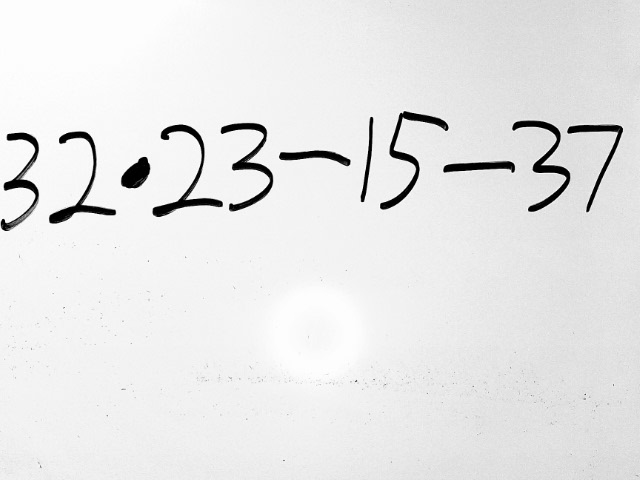 32·23-15-37